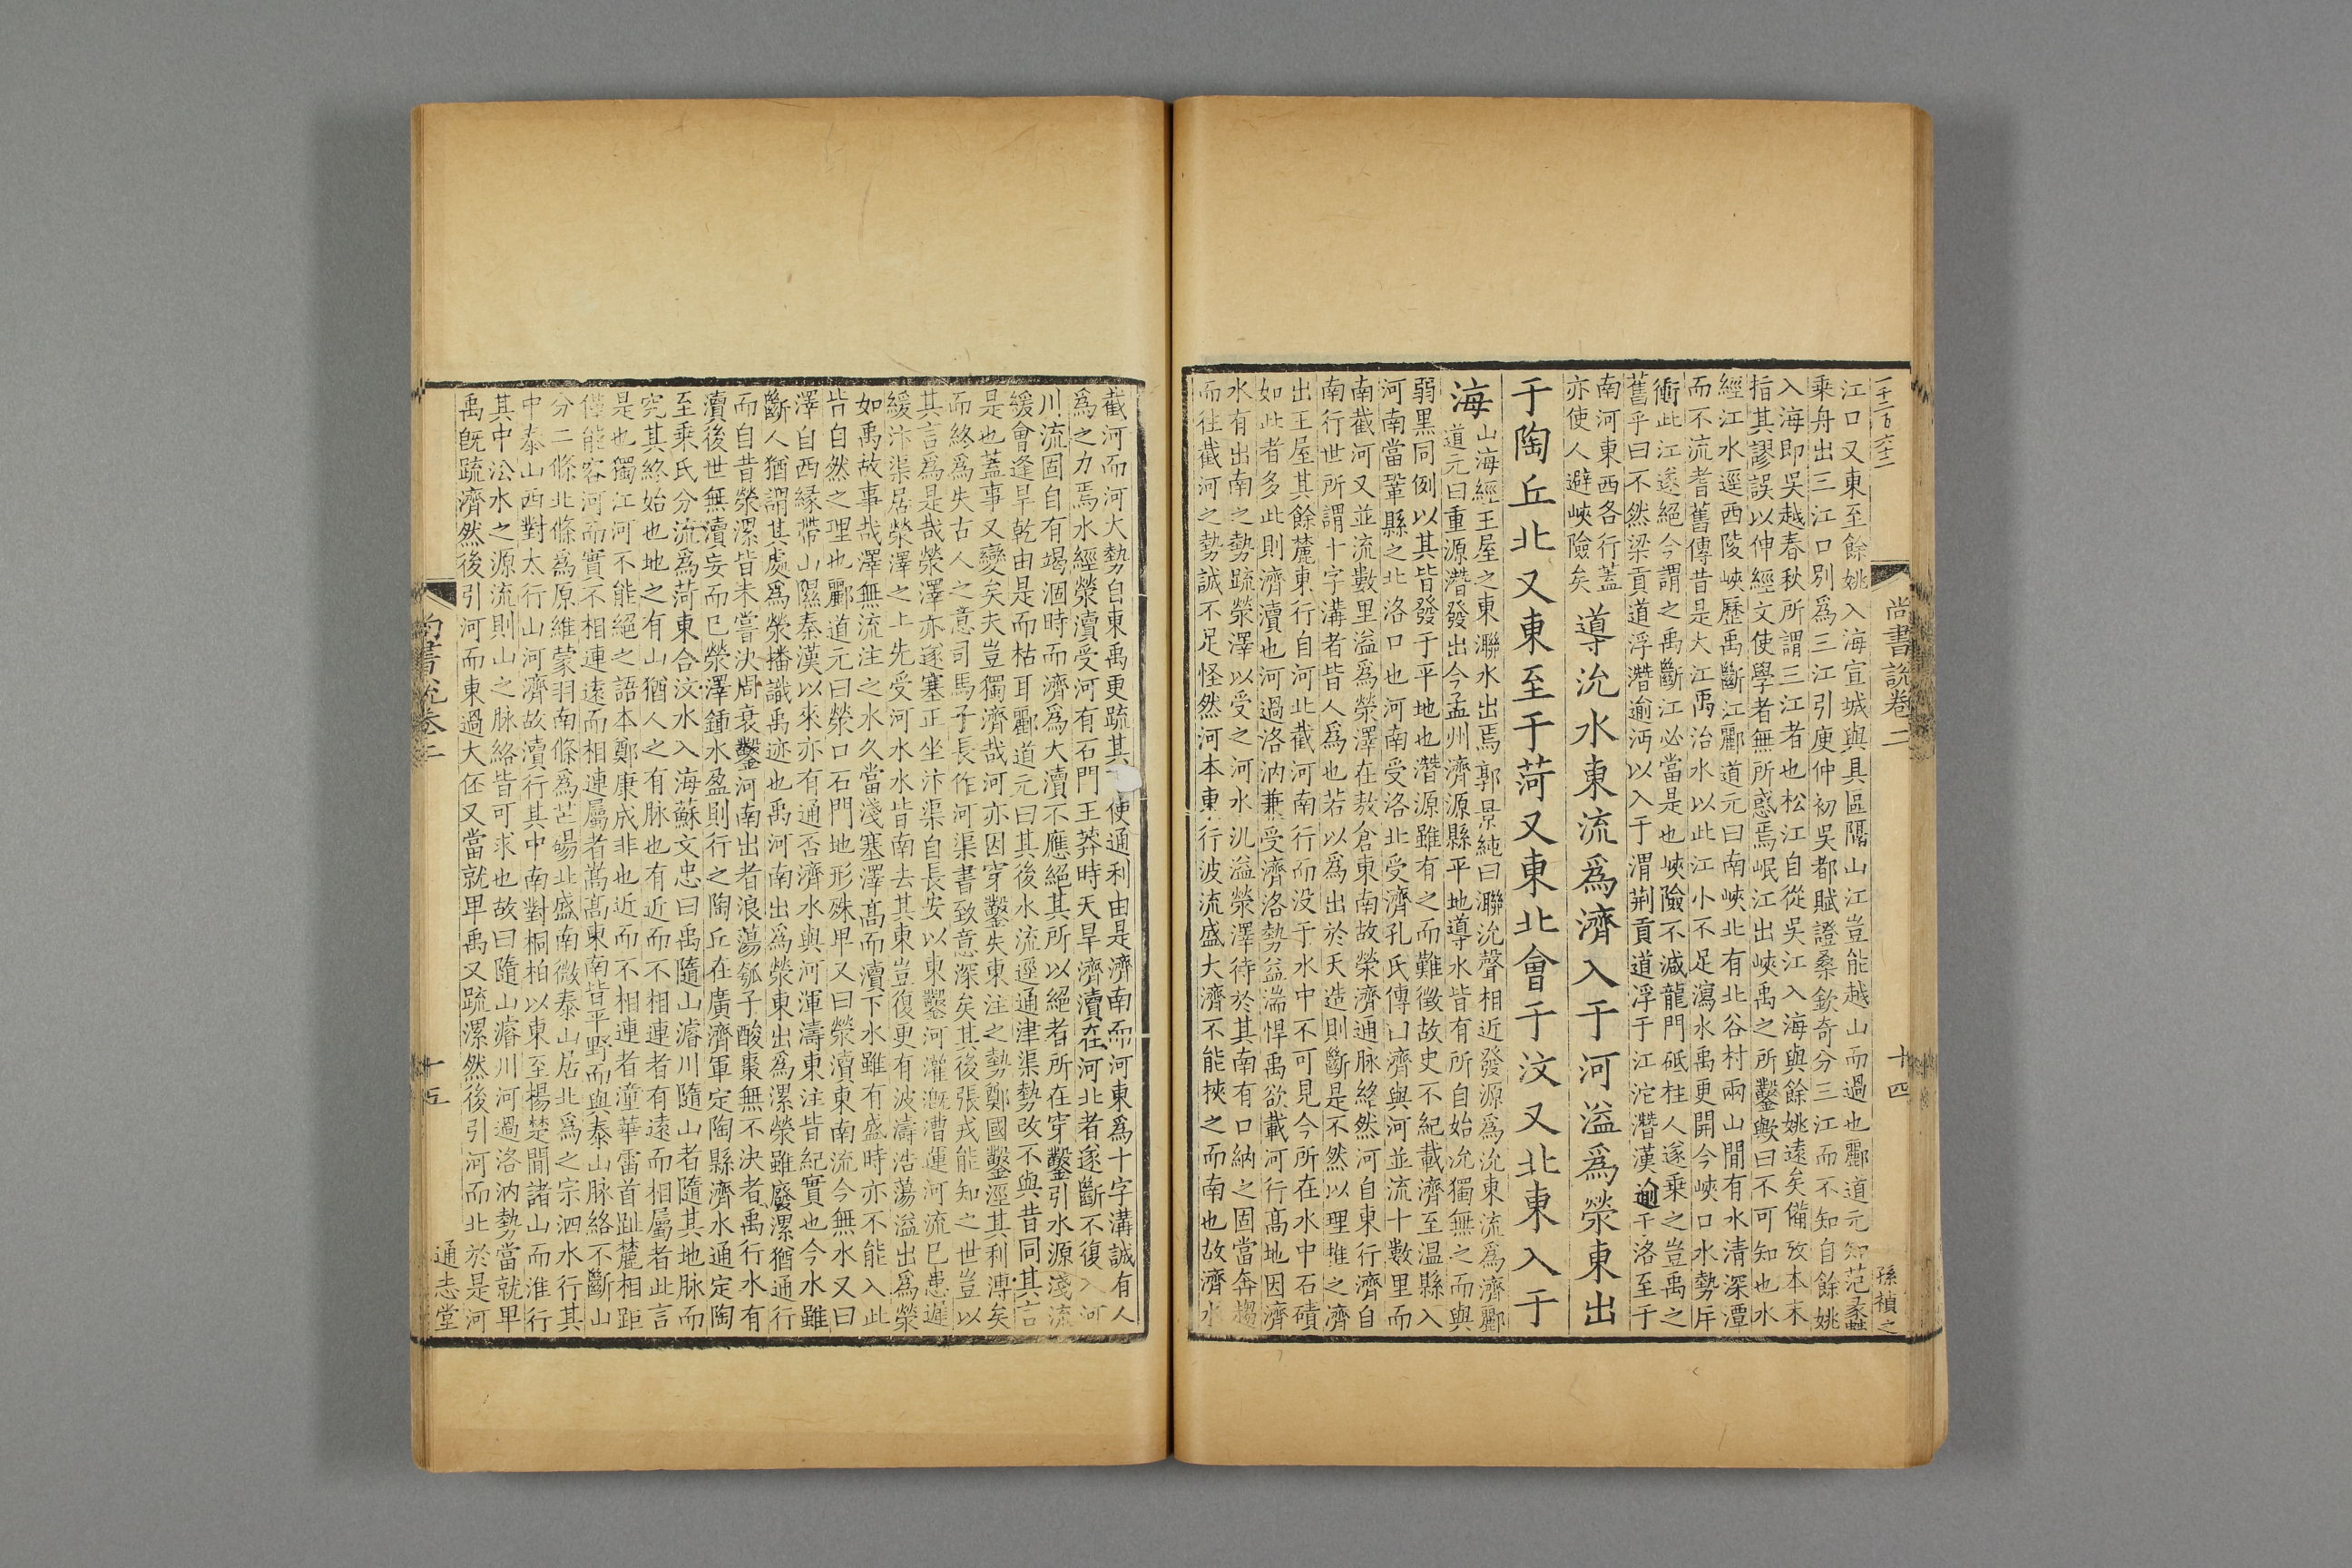 一千二百六十二
尚書說卷二
十四
孫禎之
江口又東至餘姚入海宣城與具區隔山江豈能越山而過也酈道元知范蠡
乘舟出三江口別為三江引庾仲初吳都賦證桑欽奇分三江而不知自餘姚
入海即吳越春秋所謂三江者也松江自從吳江入海與餘姚遠矣備攷本末
指其謬誤以伸經文使學者無所惑焉岷江出峽禹之所鑿歟曰不可知也水
經江水逕西陵峽歷禹斷江酈道元曰南峽北有北谷村兩山間有水清深潭
而不流耆舊傳昔是大江禹治水以此江小不足瀉水禹更開今峽口水勢并
衝此江遂絕今謂之禹斷江必當是也峽險不減龍門砥柱人遂乘之豈禹之
舊乎曰不然梁貢道浮潛逾沔以入于渭荆貢道浮于江沱潛漢逾于洛至于
南河東西各行蓋
亦使人避峽險矣
導沇水東流爲濟入于河溢爲滎東出
于陶丘北又東至于菏又東北會于汶又北東入于
海
山海經王屋之東聯水出焉郭景純曰聯沇聲相近發源爲沇東流爲濟酈
道元曰重源潛發出今孟州濟源縣平地導水皆有所自始沇獨無之而與
弱黑同例以其皆發于平地也潛源雖有之而難徵故史不紀載濟至温縣入
河南當鞏縣之北洛口也河南受洛北受濟孔氏傳曰濟與河並流十數里而
南截河又並流數里溢爲滎澤在敖倉東南故滎濟通脉絡然河自東行濟自
南行世所謂十字溝者皆人爲也若以爲出於天造則斷是不然以理推之濟
出王屋其餘麓東行自河北截河南行而没于水中不可見今所在水中石磧
如此者多此則濟瀆也河過洛汭兼受濟洛勢益湍悍禹欲載河行高地因濟
水有出南之勢疏滎澤以受之河水氿溢滎澤待於其南有口納之固當奔趨
而往截河之勢誠不足怪然河本東行波流盛大濟不能挾之而南也故濟水
截河而河大勢自東禹更疏其使通利由是濟南而河東爲十字溝誠有人
爲之力焉水經滎瀆受河有石門王莽時天旱濟瀆在河北者遂斷不復入河
川流固自有竭涸時而濟爲大瀆不應絕其所以絕者所在穿鑿引水源淺流
緩會逢旱乾由是而枯耳酈道元曰其後水流逕通津渠勢改不與昔同其言
是也蓋事又變矣夫豈獨濟哉河亦因穿鑿失東注之勢鄭國鑿涇其利溥矣
而終爲失古人之意司馬子長作河渠書致意深矣其後張戎能知之世豈以
其言爲是哉滎澤亦遂塞正坐汴渠自長安以東鑿河灌溉漕運河流已患遲
緩汴渠居滎澤之上先受河水水皆南去其東豈復更有波濤浩蕩溢出爲滎
如禹故事哉澤無流注之水久當淺塞澤高而瀆下水雖有盛時亦不能入此
皆自然之理也酈道元曰滎口石門地形殊卑又曰滎瀆東南流今無水又曰
澤自西緣帶山隰秦漢以來亦有通否濟水與河渾濤東注皆紀實也今水雖
斷人猶謂其處爲滎播識禹迹也禹河南出爲滎東出爲漯滎雖廢漯猶通行
而自昔滎漯皆未嘗決周衰鑿河南出者浪蕩瓠子酸棗無不決者禹行水有
瀆後世無瀆妄而已滎澤鍾水盈則行之陶丘在廣濟軍定陶縣濟水通定陶
至乘氏分流爲菏東合汶水入海蘇文忠曰禹隨山濬川隨山者隨其地脉而
究其終始也地之有山猶人之有脉也有近而不相連者有遠而相屬者此言
是也獨江河不能絕之語本鄭康成非也近而不相連者潼華雷首趾麓相距
僅能容河而實不相連遠而相連屬者嵩高東南皆平野而與泰山脉絡不斷山
分二條北條爲原維蒙羽南條爲芒碭北盛南微泰山居北爲之宗泗水行其
中泰山西對太行山河濟故瀆行其中南對桐柏以東至楊楚間諸山而淮行
其中沇水之源流則山之脉絡皆可求也故曰隨山濬川河過洛汭勢當就卑
禹旣疏濟然後引河而東過大伾又當就卑禹又疏漯然後引河而北於是河
尚書說卷二
十五
通志堂